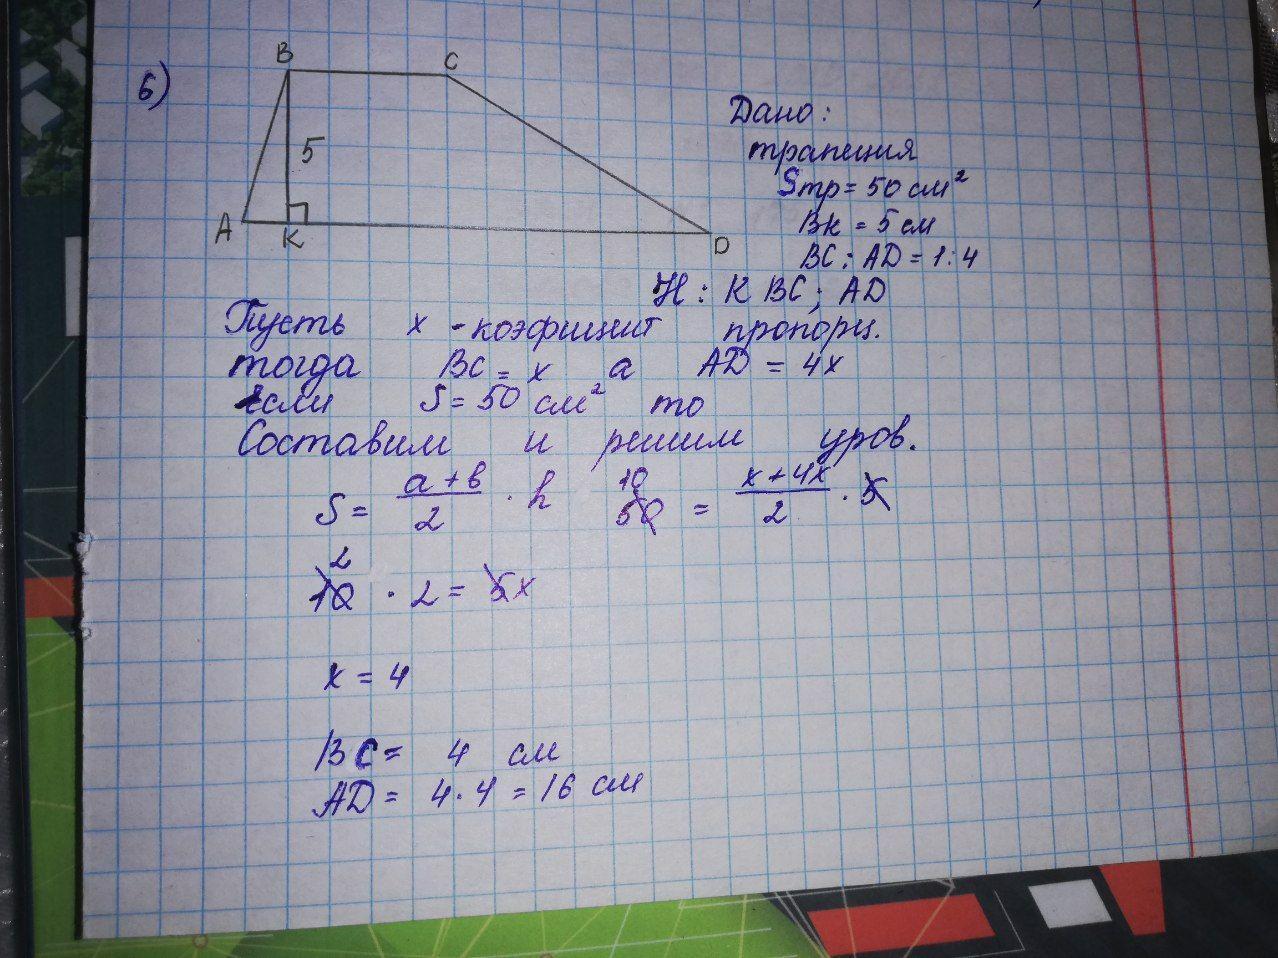 6)
B
C
5
A
K
D
Дано:
трапеция
Sтр = 50 см²
BK = 5 см
BC : AD = 1 : 4
Н : К BC ; AD
Пусть x - коэфицит пропорц.
тогда BC = x а AD = 4x
Если S = 50 см² то
Составим и решим уров.
S = a + b / 2 · h 10 50 = x + 4x / 2 · 5
2
10 · 2 = 5x
x = 4
BC = 4 см
AD = 4 · 4 = 16 см